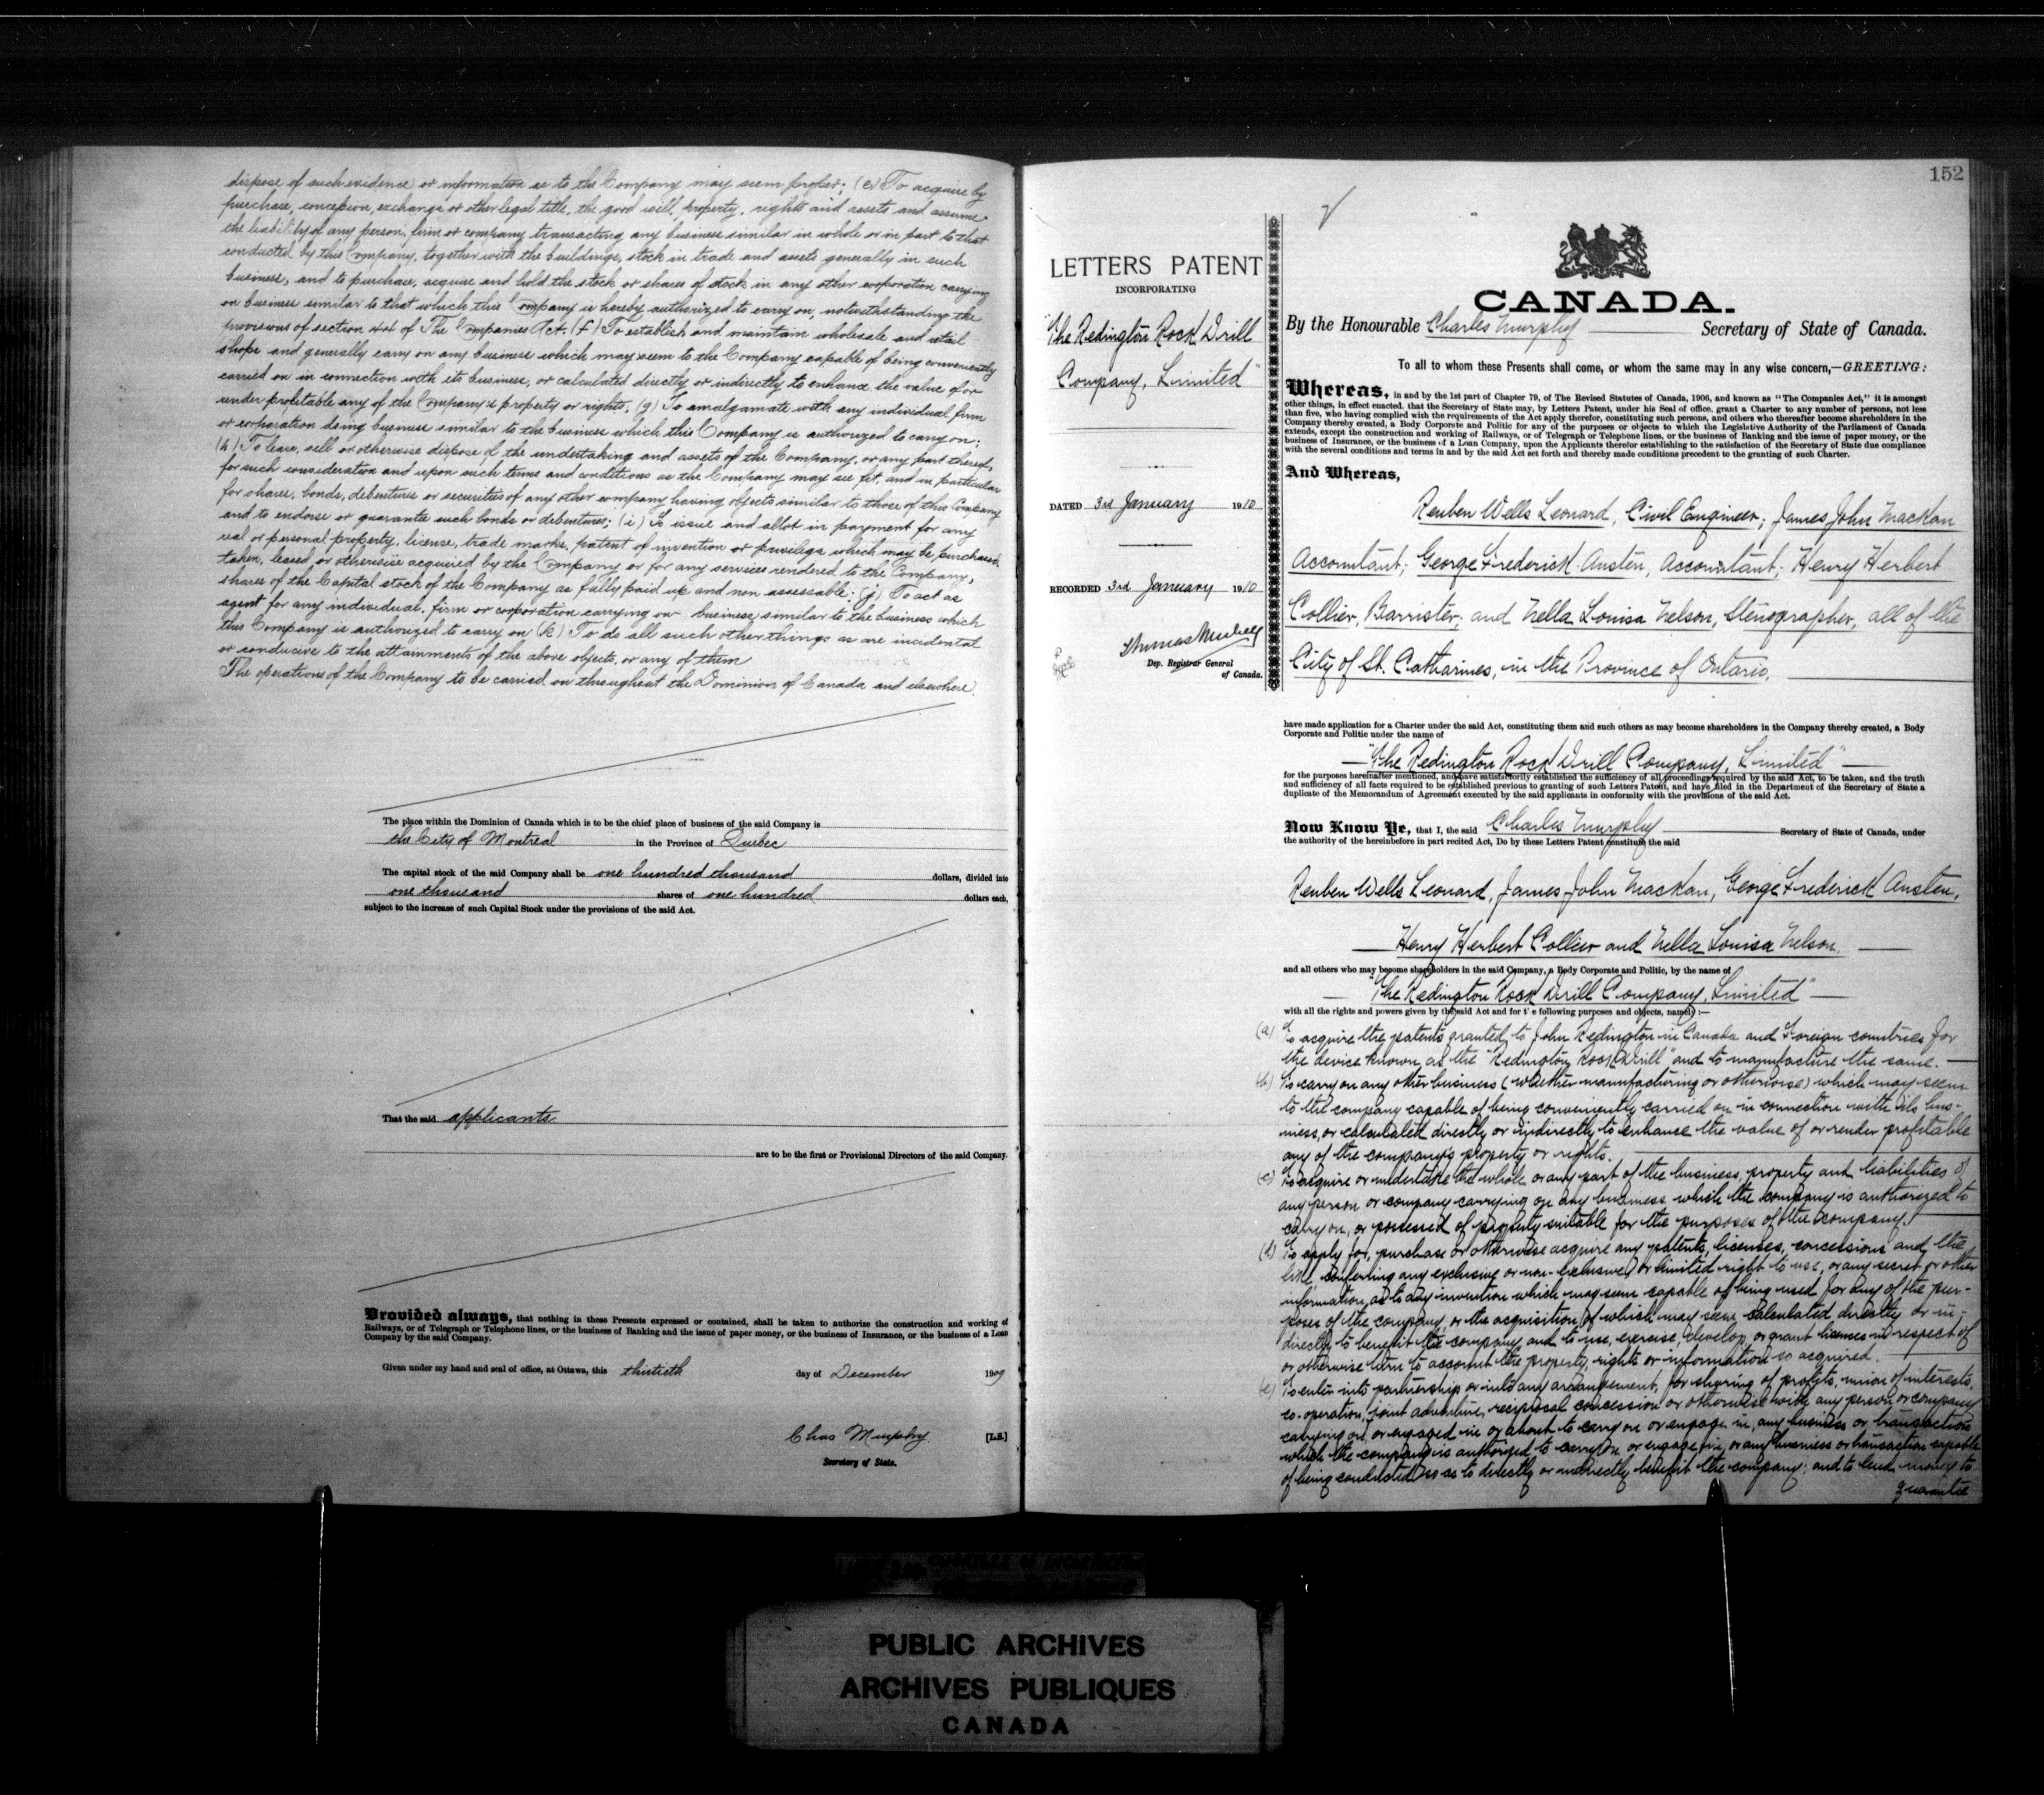 dispose of such evidence or information as to the Company may seem proper; (e) To acquire by
purchase, concession, exchange or other legal title, the good will, property, rights and assets and assume
the liability of any person, firm or company transacting any business similar in whole or in part to that
conducted by this Company, together with the buildings, stock in trade and assets generally in such
business, and to purchase, acquire and hold the stock or shares of stock in any other corporation carrying
on business similar to that which this Company is hereby authorized to carry on, notwithstanding the
provisions of section 44 of The Companies Act. (f) To establish and maintain wholesale and retail
shops and generally carry on any business which may seem to the Company capable of being conveniently
carried on in connection with its business, or calculated directly or indirectly to enhance the value of or
render profitable any of the Company's property or rights; (g) To amalgamate with any individual firm
or corporation doing business similar to the business which this Company is authorized to carry on;
(h) To lease, sell or otherwise dispose of the undertaking and assets of the Company, or any part thereof,
for such consideration and upon such terms and conditions as the Company may see fit, and in particular
for shares, bonds, debentures or securities of any other company having objects similar to those of this Company
and to endorse or guarantee such bonds or debentures; (i) To issue and allot in payment for any
real or personal property, license, trade marks, patent of invention or privilege which may be purchased,
taken, leased or otherwise acquired by the Company or for any services rendered to the Company,
shares of the Capital stock of the Company as fully paid up and non assessable; (j) To act as
agent for any individual, firm or corporation carrying on business similar to the business which
this Company is authorized to carry on (k) To do all such other things as are incidental
or conducive to the attainments of the above objects, or any of them
The operations of the Company to be carried on throughout the Dominion of Canada and elsewhere.
The place within the Dominion of Canada which is to be the chief place of business of the said Company is
the City of Montreal in the Province of Quebec
The capital stock of the said Company shall be one hundred thousand dollars, divided into
one thousand shares of one hundred dollars each,
subject to the increase of such Capital Stock under the provisions of the said Act.
That the said applicants
are to be the first or Provisional Directors of the said Company.
Provided always, that nothing in these Presents expressed or contained, shall be taken to authorize the construction and working of
Railways, or of Telegraph or Telephone lines, or the business of Banking and the issue of paper money, or the business of Insurance, or the business of a Loan
Company by the said Company.
Given under my hand and seal of office, at Ottawa, this thirtieth day of December 1909
Chas Murphy [L.S.]
Secretary of State.
152
LETTERS PATENT
INCORPORATING
"The Redington Rock Drill
Company, Limited"
DATED 3rd January 1910
RECORDED 3rd January 1910
Dep. Registrar General
of Canada.
CANADA.
By the Honourable Charles Murphy Secretary of State of Canada.
To all to whom these Presents shall come, or whom the same may in any wise concern,—GREETING:
Whereas, in and by the 1st part of Chapter 79, of The Revised Statutes of Canada, 1906, and known as "The Companies Act," it is amongst
other things, in effect enacted, that the Secretary of State may, by Letters Patent, under his Seal of office, grant a Charter to any number of persons, not less
than five, who having complied with the requirements of the Act apply therefor, constituting such persons, and others who thereafter become shareholders in the
Company thereby created, a Body Corporate and Politic for any of the purposes or objects to which the Legislative Authority of the Parliament of Canada
extends, except the construction and working of Railways, or of Telegraph or Telephone lines, or the business of Banking and the issue of paper money, or the
business of Insurance, or the business of a Loan Company, upon the Applicants therefor establishing to the satisfaction of the Secretary of State due compliance
with the several conditions and terms in and by the said Act set forth and thereby made conditions precedent to the granting of such Charter.
And Whereas,
Reuben Wells Leonard, Civil Engineer; James John Mackan
Accountant; George Frederick Austen, Accountant; Henry Herbert
Collier, Barrister; and Nella Louisa Nelson, Stenographer, all of the
City of St. Catharines, in the Province of Ontario,
have made application for a Charter under the said Act, constituting them and such others as may become shareholders in the Company thereby created, a Body
Corporate and Politic under the name of
"The Redington Rock Drill Company, Limited"
for the purposes hereinafter mentioned, and have satisfactorily established the sufficiency of all proceedings required by the said Act, to be taken, and the truth
and sufficiency of all facts required to be established previous to granting of such Letters Patent, and have filed in the Department of the Secretary of State a
duplicate of the Memorandum of Agreement executed by the said applicants in conformity with the provisions of the said Act.
Now Know Ye, that I, the said Charles Murphy Secretary of State of Canada, under
the authority of the hereinbefore in part recited Act, Do by these Letters Patent constitute the said
Reuben Wells Leonard, James John Mackan, George Frederick Austen,
Henry Herbert Collier and Nella Louisa Nelson,
and all others who may become shareholders in the said Company, a Body Corporate and Politic, by the name of
"The Redington Rock Drill Company, Limited"
with all the rights and powers given by the said Act and for the following purposes and objects, namely:—
(a) To acquire the patents granted to John Redington in Canada and Foreign countries for
the device known as the "Redington Rock Drill" and to manufacture the same.
(b) To carry on any other business (whether manufacturing or otherwise) which may seem
to the company capable of being conveniently carried on in connection with its bus-
iness, or calculated directly or indirectly to enhance the value of or render profitable
any of the company's property or rights.
(c) To acquire or undertake the whole or any part of the business, property and liabilities of
any person or company carrying on any business which the company is authorized to
carry on, or possessed of property suitable for the purposes of the company.
(d) To apply for, purchase or otherwise acquire any patents, licenses, concessions and the
like conferring any exclusive or non-exclusive, or limited right to use, or any secret or other
information as to any invention which may seem capable of being used for any of the pur-
poses of the company, or the acquisition of which may seem calculated directly or in-
directly to benefit the company, and to use, exercise, develop, or grant licenses in respect of
or otherwise turn to account the property, rights or information so acquired.
(e) To enter into partnership or into any arrangement for sharing of profits, union of interests,
co-operation, joint adventure, reciprocal concession or otherwise with any person or company
carrying on or engaged in or about to carry on or engage in, any business or transaction
which the company is authorized to carry on or engage in, or any business or transaction capable
of being conducted so as to directly or indirectly benefit the company; and to lend money to
guarantee
PUBLIC ARCHIVES
ARCHIVES PUBLIQUES
CANADA